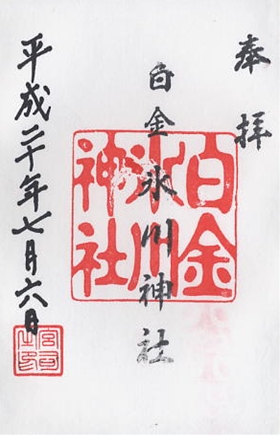 奉拝
白金氷川神社
白金
氷川
神社
平成二十年七月六日